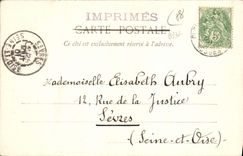 IMPRIMÉS
CARTE POSTALE
Ce côté est exclusivement réservé à l'adresse.
Mademoiselle Elisabeth Aubry
12, Rue de la Justice
Sèvres
(Seine-et-Oise)